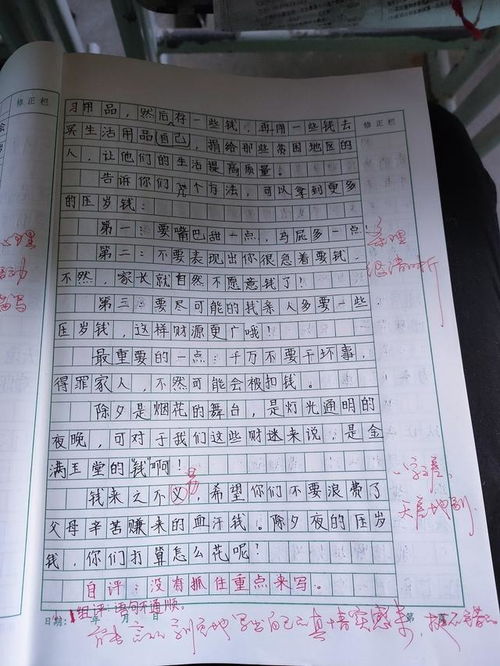 修正栏
修正栏
习用品，然后存一些钱，再用一些钱去
买生活用品(自己)，捐给那些贫困地区的
人，让他们的生活提高质量。
告诉你们几个方法，可以拿到更多
的压岁钱：
第一：要嘴巴甜一点，马屁多一点！
第二：不要表现出你很急着要钱，
不然，家长就自然不愿意钱了！
第三：要尽可能的找亲人多要一些
压岁钱，这样财源更广哦！
最重要的一点：千万不要干坏事，
得罪家人，不然可能会被扣钱。
除夕是烟花的舞台，是灯光通明的
夜晚，可对于我们这些财迷来说，是金
满玉堂的"钱"啊！
钱来之不义，希望你们不要浪费了
易
父母辛苦赚来的血汗钱。除夕夜的压岁
钱，你们打算怎么花呢？
条理
清晰
一字之差，
天差地别
自评：没有抓住重点来写。
组评：语句不通顺。
日期： 年 月 日
第
写出自己的真情实感来，